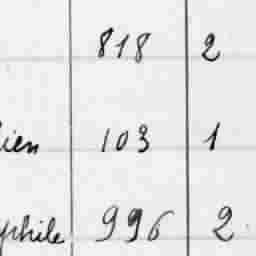 818 2
ien 103 1
phile 996 2